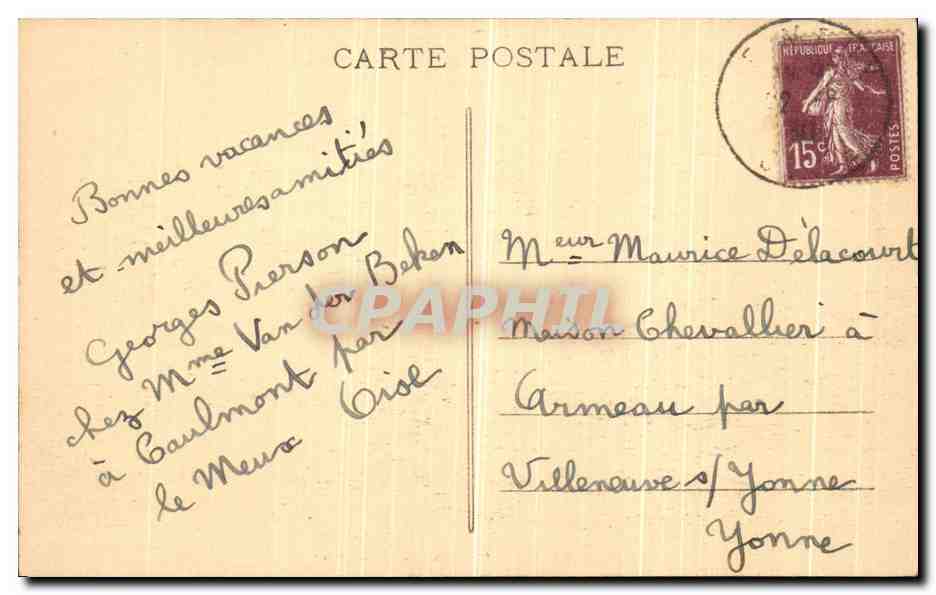 CARTE POSTALE
RÉPUBLIQUE FRANÇAISE
15c
POSTES
Bonnes vacances
et meilleures amitiés
Georges Pierson
chez Mme Van der Beken
à Caulmont par
le Meux Oise
CPAPHIL
Meur Maurice Délacourt
Maison Chevallier à
Armeau par
Villeneuve s/ Yonne
Yonne